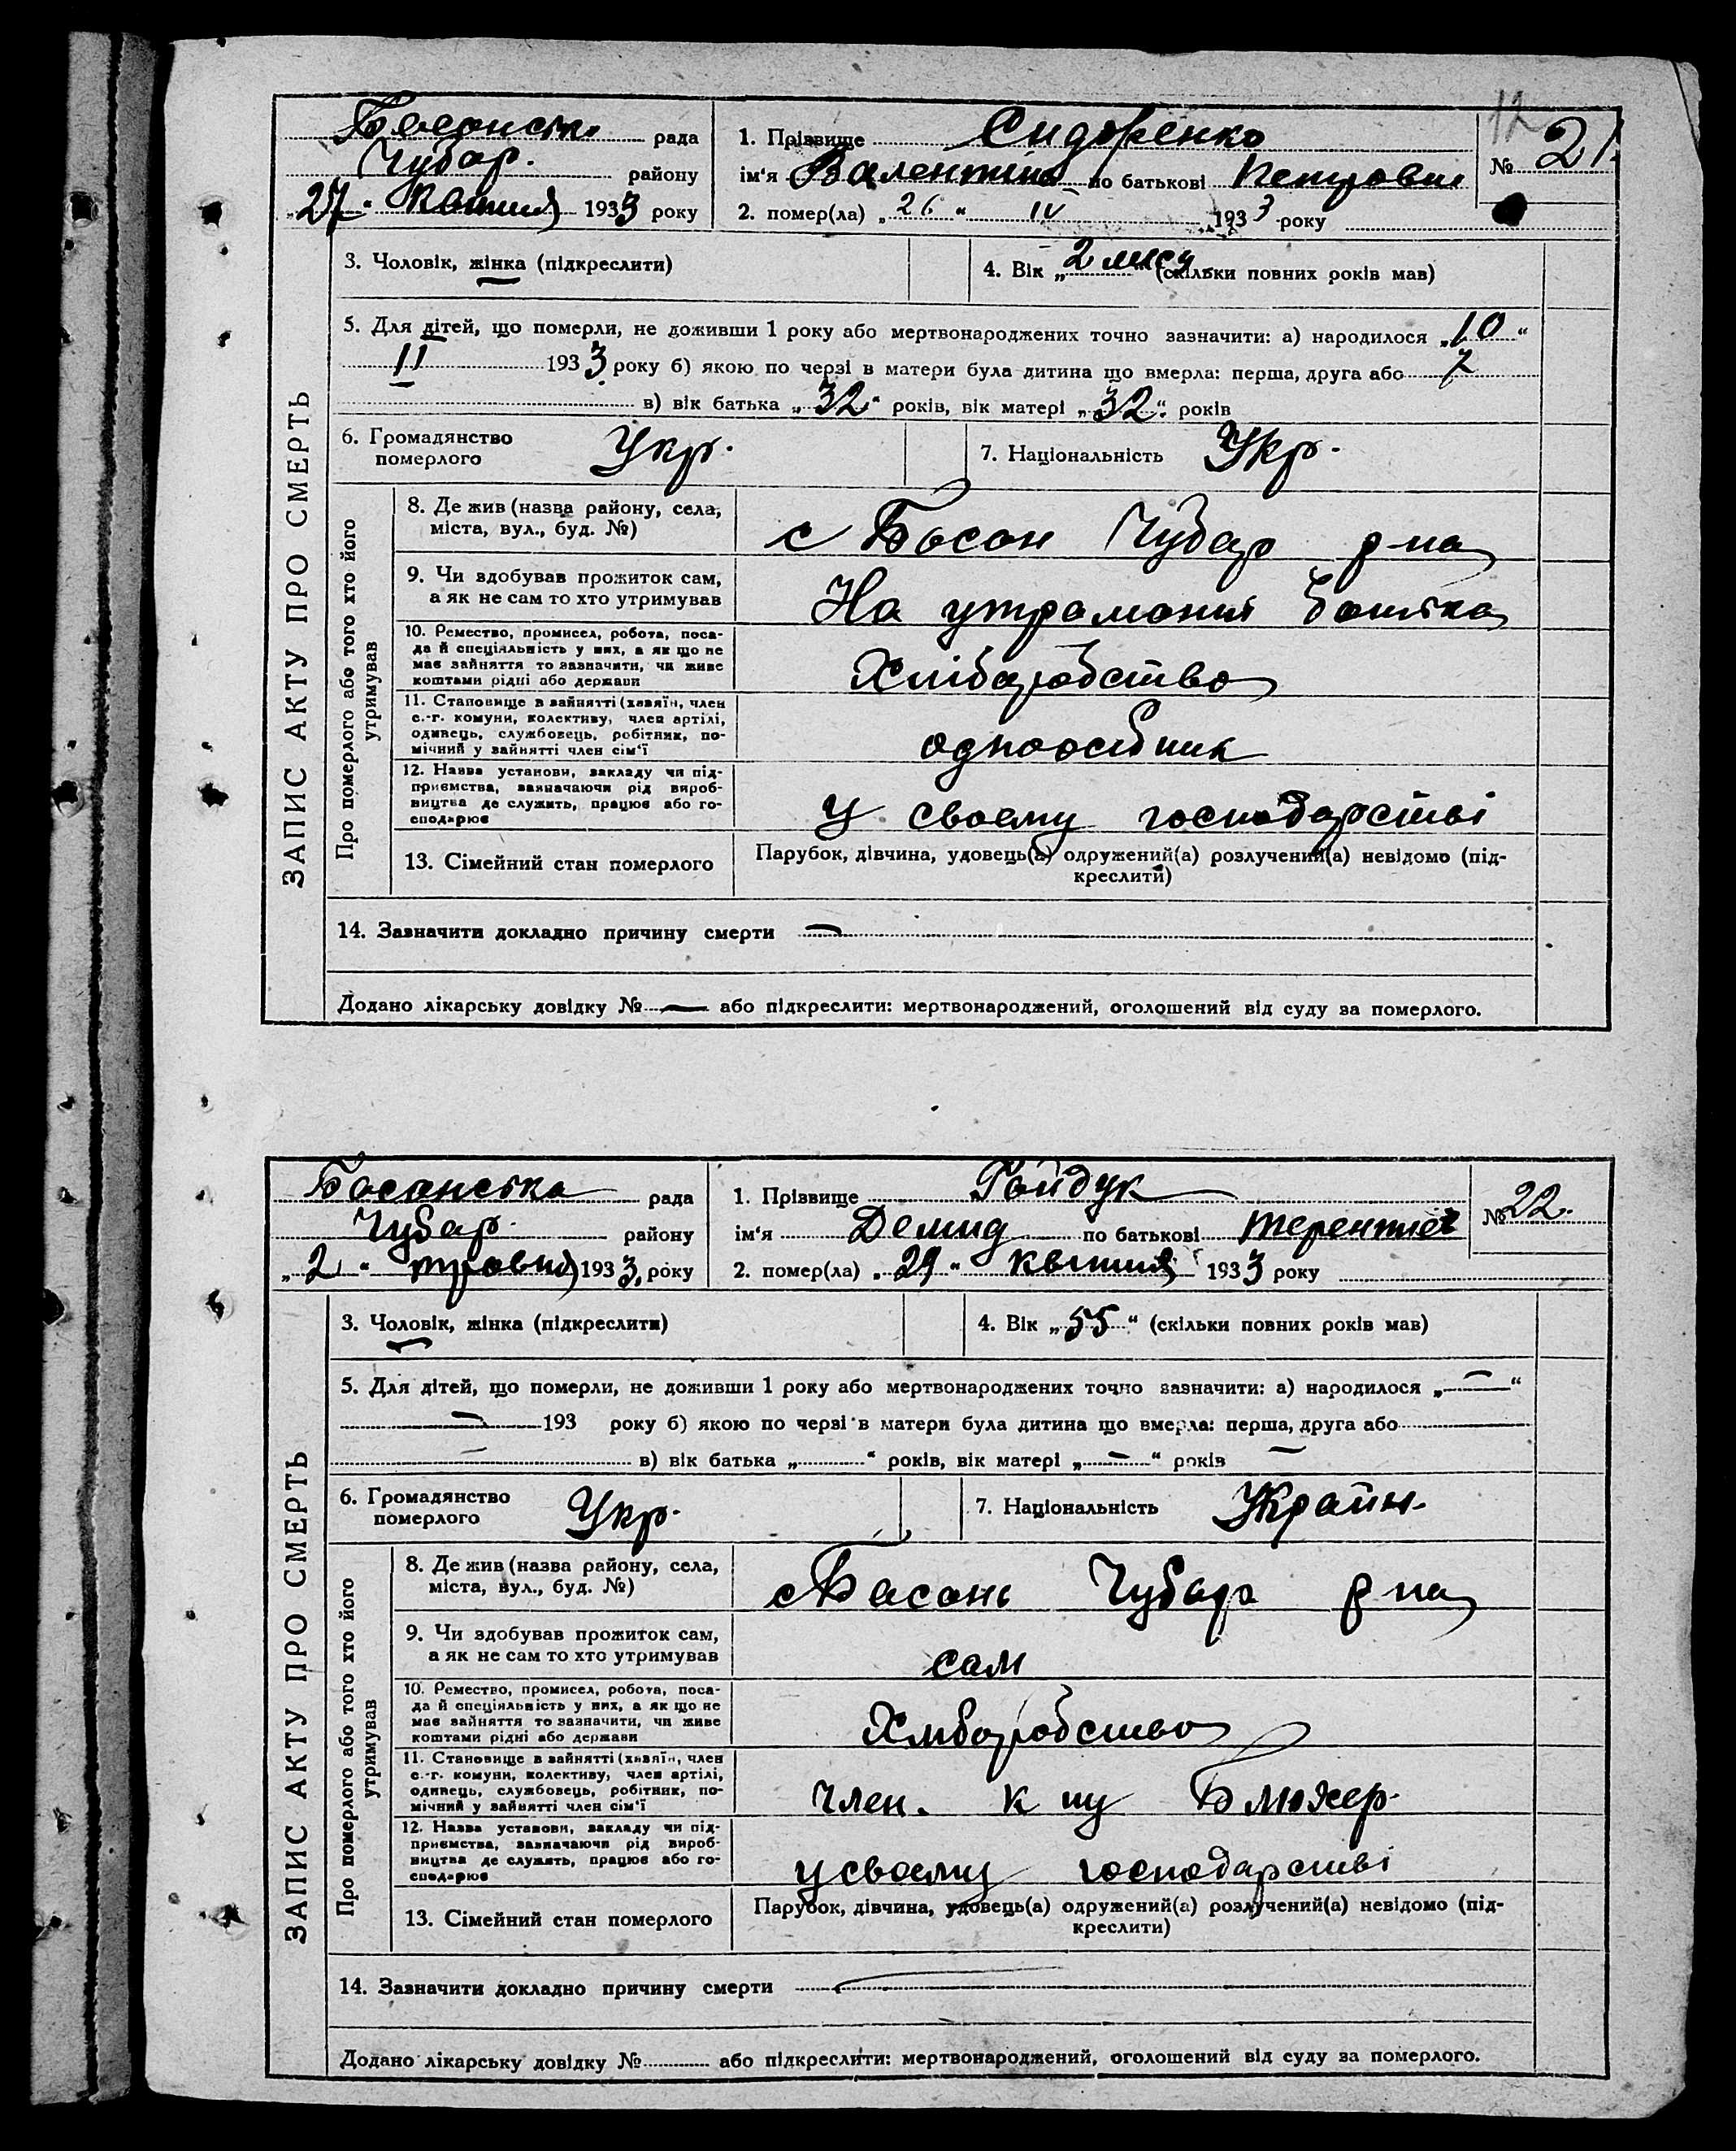 12
Басанськ. рада
Чубар. району
„27“ Квітня 1933 року
1. Пріввище Сидоренко
ім‘я Валентина по батькові Петровна
№ 21.
2. помер(ла) „26“ IV 1933 року
3. Чоловік, жінка (підкреслити)
4. Вік „2 мися“ (скільки повних років мав)
5. Для дітей, що померли, не доживши 1 року або мертвонароджених точно зазначити: а) народилося „10“
II 1933 року б) якою по черзі в матери була дитина що вмерла: перша, друга або 7
в) вік батька „32“ років, вік матері „32“ років
6. Громадянство
померлого
Укр.
7. Національність Укр.
ЗАПИС АКТУ ПРО СМЕРТЬ
Про померлого або того хто його
утримував
8. Де жив (назва району, села,
міста, вул., буд. №)
с Босон Чубар р-на
9. Чи здобував прожиток сам,
а як не сам то хто утримував
На утраманні батька
10. Ремество, промисел, робота, поса-
да й спеціяльність у них, а як що не
має зайняття то зазначити, чи живе
коштами рідні або держави
Хліборобство
11. Становище в зайнятті (хазяїн, член
с.-г. комуни, колективу, член артілі,
одинець, службовець, робітник, по-
мічний у зайнятті член сім‘ї
одноосібник
12. Назва установи, закладу чи під-
приємства, зазначаючи рід вироб-
ництва де служить, працює або го-
сподарює
У своему господарстві
13. Сімейний стан померлого
Парубок, дівчина, удовець(а) одружений(а) розлучений(а) невідомо (під-
креслити)
14. Зазначити докладно причину смерти —
Додано лікарську довідку № — або підкреслити: мертвонароджений, оголошений від суду за померлого.
Басанська рада
Чубар. району
„2“ травня 1933 року
1. Пріввище Гайдук
ім‘я Демид по батькові Терентиев
№ 22.
2. помер(ла) „29“ Квітня 1933 року
3. Чоловік, жінка (підкреслити)
4. Вік „55“ (скільки повних років мав)
5. Для дітей, що померли, не доживши 1 року або мертвонароджених точно зазначити: а) народилося „—“
— 193 року б) якою по черзі в матери була дитина що вмерла: перша, друга або
— в) вік батька „ “ років, вік матері „—“ років —
6. Громадянство
померлого
Укр.
7. Національність Україн.
ЗАПИС АКТУ ПРО СМЕРТЬ
Про померлого або того хто його
утримував
8. Де жив (назва району, села,
міста, вул., буд. №)
с Басань Чубар р на
9. Чи здобував прожиток сам,
а як не сам то хто утримував
сам
10. Ремество, промисел, робота, поса-
да й спеціяльність у них, а як що не
має зайняття то зазначити, чи живе
коштами рідні або держави
Хліборобство
11. Становище в зайнятті (хазяїн, член
с.-г. комуни, колективу, член артілі,
одинець, службовець, робітник, по-
мічний у зайнятті член сім‘ї
член. к пу Блюхер.
12. Назва установи, закладу чи під-
приємства, зазначаючи рід вироб-
ництва де служить, працює або го-
сподарює
у своему господарстві
13. Сімейний стан померлого
Парубок, дівчина, удовець(а) одружений(а) розлучений(а) невідомо (під-
креслити)
14. Зазначити докладно причину смерти —
Додано лікарську довідку № або підкреслити: мертвонароджений, оголошений від суду за померлого.